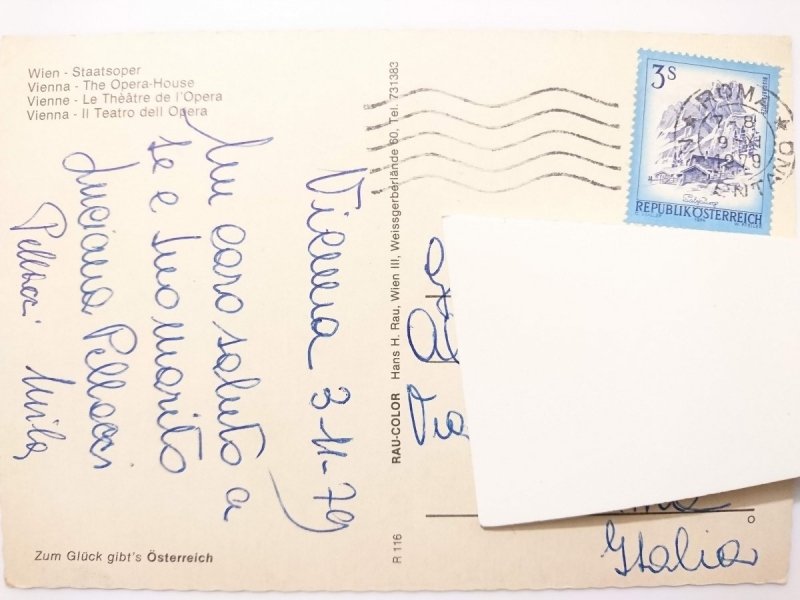 Wien - Staatsoper
Vienna - The Opera-House
Vienne - Le Thèâtre de l'Opera
Vienna - Il Teatro dell Opera
Vienna 3-11-79
Un caro saluto a
te e tuo marito
Luciana Pellacci
Pellacci Mila
Zum Glück gibt's Österreich
R 116 RAU-COLOR Hans H. Rau, Wien III, Weissgerberlände 60, Tel. 731383
3S
REPUBLIK ÖSTERREICH
ROMA
1979
Via
Italia